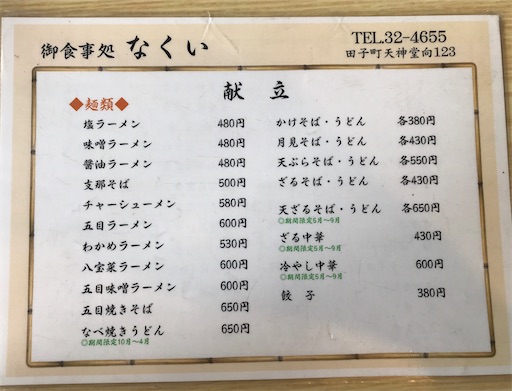 御食事処 なくい
TEL.32-4655
田子町天神堂向123
献立
◆麺類◆
塩ラーメン 480円
味噌ラーメン 480円
醤油ラーメン 480円
支那そば 500円
チャーシューメン 580円
五目ラーメン 600円
わかめラーメン 530円
八宝菜ラーメン 600円
五目味噌ラーメン 600円
五目焼きそば 650円
なべ焼きうどん 650円
◎期間限定10月〜4月
かけそば・うどん 各380円
月見そば・うどん 各430円
天ぷらそば・うどん 各550円
ざるそば・うどん 各430円
天ざるそば・うどん 各650円
◎期間限定5月〜9月
ざる中華 430円
◎期間限定5月〜9月
冷やし中華 600円
◎期間限定5月〜9月
餃子 380円